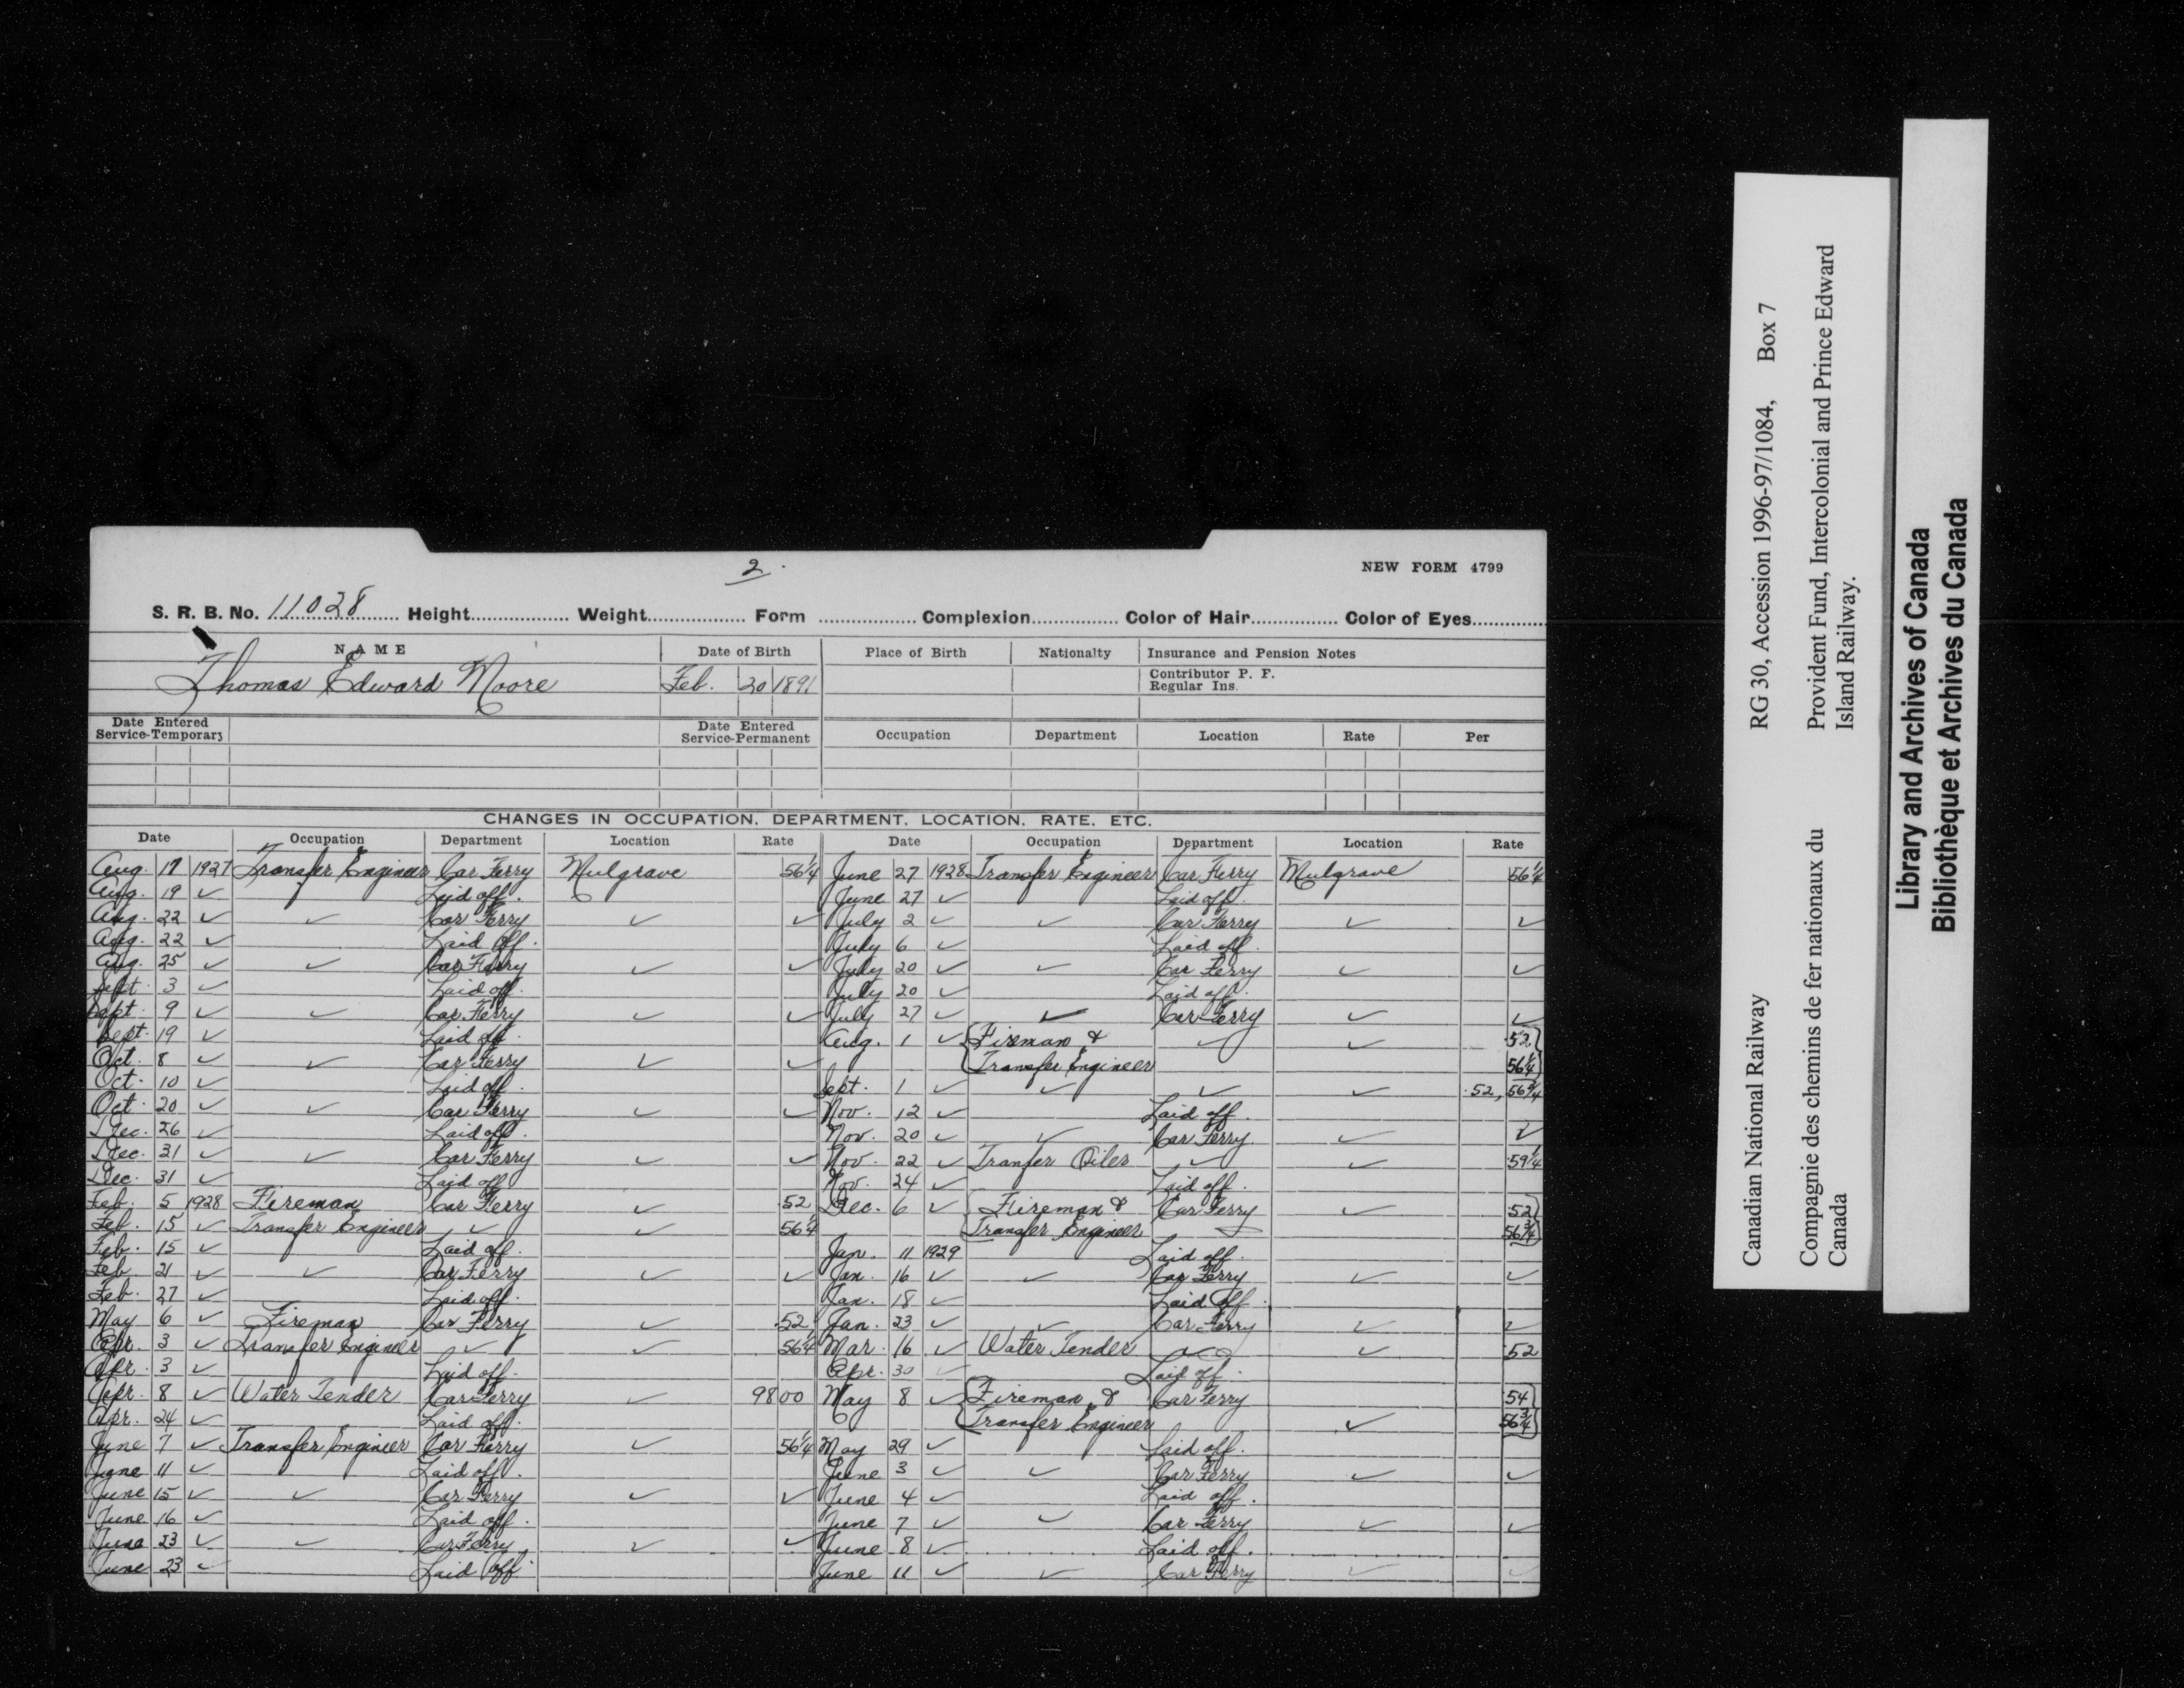 2.
NEW FORM 4799
S. R. B. No. 11028 Height Weight Form Complexion Color of Hair Color of Eyes
NAME Date of Birth Place of Birth Nationalty Insurance and Pension Notes
Thomas Edward Moore Feb. 20 1891 Contributor P. F.
Regular Ins.
Date Entered Service-Temporary Date Entered Service-Permanent Occupation Department Location Rate Per
CHANGES IN OCCUPATION, DEPARTMENT, LOCATION, RATE, ETC.
Date Occupation Department Location Rate Date Occupation Department Location Rate
Aug. 17 1927 Transfer Engineer Car Ferry Mulgrave 56¼
Aug. 19 ✓ Laid off.
Aug. 22 ✓ ✓ Car Ferry ✓ ✓
Aug. 22 ✓ Laid off.
Aug. 25 ✓ ✓ Car Ferry ✓ ✓
Sept. 3 ✓ Laid off.
Sept. 9 ✓ ✓ Car Ferry ✓ ✓
Sept. 19 ✓ Laid off.
Oct. 8 ✓ ✓ Car Ferry ✓ ✓
Oct. 10 ✓ Laid off.
Oct. 20 ✓ ✓ Car Ferry ✓ ✓
Dec. 26 ✓ Laid off.
Dec. 31 ✓ ✓ Car Ferry ✓ ✓
Dec. 31 ✓ Laid off
Feb. 5 1928 Fireman Car Ferry ✓ 52
Feb. 15 ✓ Transfer Engineer ✓ ✓ 56¼
Feb. 15 ✓ Laid off.
Feb. 21 ✓ ✓ Car Ferry ✓ ✓
Feb. 27 ✓ Laid off.
May 6 ✓ Fireman Car Ferry ✓ .52
Apr. 3 ✓ Transfer Engineer ✓ ✓ 56¼
Apr. 3 ✓ Laid off.
Apr. 8 ✓ Water Tender Car Ferry ✓ 98 00
Apr. 24 ✓ Laid off.
June 7 ✓ Transfer Engineer Car Ferry ✓ 56¼
June 11 ✓ Laid off.
June 15 ✓ ✓ Car Ferry ✓ ✓
June 16 ✓ Laid off.
June 23 ✓ ✓ Car Ferry ✓ ✓
June 23 ✓ Laid off
June 27 1928 Transfer Engineer Car Ferry Mulgrave 56¼
June 27 ✓ Laid off.
July 2 ✓ ✓ Car Ferry ✓ ✓
July 6 ✓ Laid off.
July 20 ✓ ✓ Car Ferry ✓ ✓
July 20 ✓ Laid off.
July 27 ✓ ✓ Car Ferry ✓ ✓
Aug. 1 ✓ Fireman & ✓ ✓ .52
Transfer Engineer 56¼
Sept. 1 ✓ ✓ ✓ ✓ .52, 56¾
Nov. 12 ✓ Laid off.
Nov. 20 ✓ ✓ Car Ferry. ✓ ✓
Nov. 22 ✓ Tranfer Oiler ✓ ✓ 59¼
Nov. 24 ✓ Laid off.
Dec. 6 ✓ Fireman & Car Ferry ✓ 52
Transfer Engineer 56¾
Jan. 11 1929 Laid off.
Jan. 16 ✓ ✓ Car Ferry ✓ ✓
Jan. 18 ✓ Laid off.
Jan. 23 ✓ ✓ Car Ferry ✓ ✓
Mar. 16 ✓ Water Tender ✓ ✓ 52
Apr. 30 ✓ Laid off.
May 8 ✓ Fireman & Car Ferry 54
Transfer Engineer ✓ 56¾
May 29 ✓ Laid off.
June 3 ✓ ✓ Car Ferry ✓ ✓
June 4 ✓ Laid off.
June 7 ✓ ✓ Car Ferry ✓ ✓
June 8 ✓ Laid off.
June 11 ✓ ✓ Car Ferry ✓ ✓
Canadian National Railway RG 30, Accession 1996-97/1084, Box 7
Compagnie des chemins de fer nationaux du Canada
Provident Fund, Intercolonial and Prince Edward Island Railway.
Library and Archives of Canada
Bibliothèque et Archives du Canada